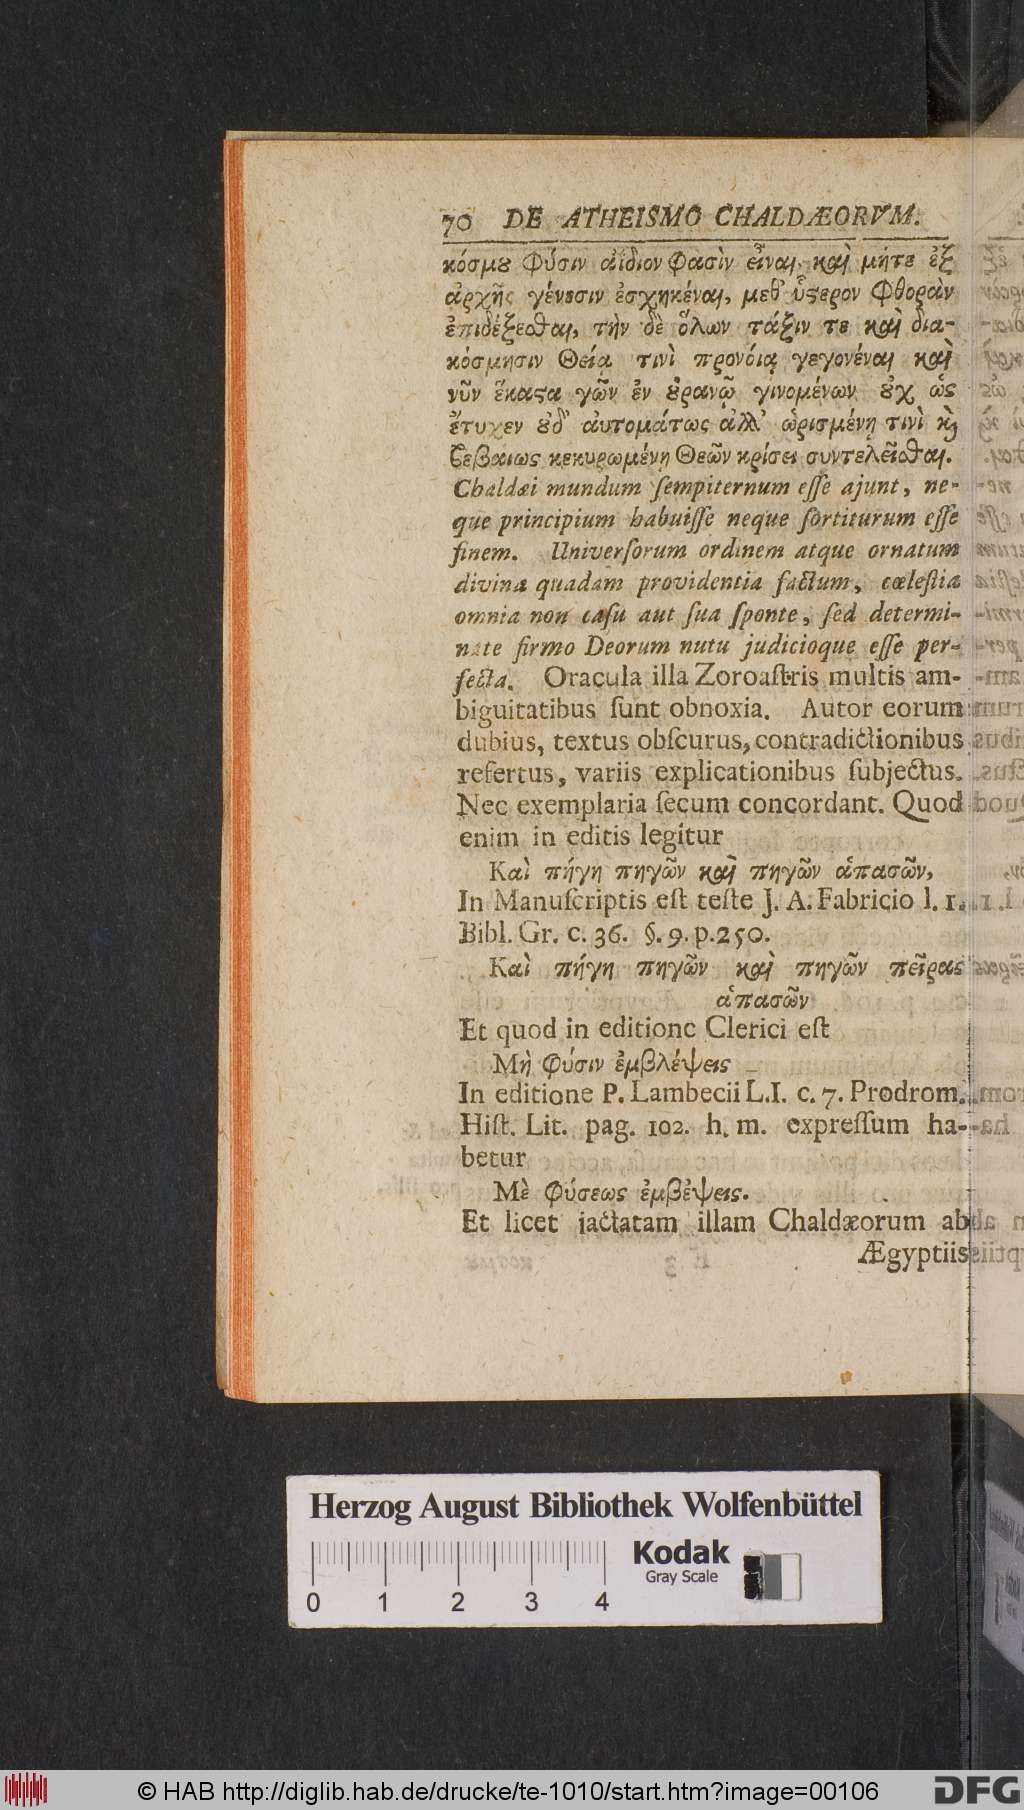 70 DE ATHEISMO CHALDÆORVM.
κόσμȣ Φύσιν ἀίδιον Φασὶν εἶναι, καὶ μήτε ἐξ
ἀρχῆς γένεσιν ἐσχηκέναι, μεθ' ὕϛερον Φθορὰν
ἐπιδέξεσθαι, τὴν δὲ ὅλων τάξιν τε καὶ δια-
κόσμησιν Θείᾳ τινὶ προνόιᾳ γεγονέναι καὶ
νῦν ἕκαϛα γῶν ἐν ȣ̓ρανῷ γινομένων ȣ̓χ ὡς
ἔτυχεν ȣ̓δ' ἀυτομάτως ἀλλ' ὡρισμένη τινὶ κ̀
ϐεβαιως κεκυρωμένη Θεῶν κρίσει συντελεῖσθαι.
Chaldæi mundum ſempiternum eſſe ajunt, ne-
que principium habuiſſe neque ſortiturum eſſe
finem. Univerſorum ordinem atque ornatum
divina quadam providentia factum, cœleſtia
omnia non caſu aut ſua ſponte, ſed determi-
nate firmo Deorum nutu judicioque eſſe per-
fecta. Oracula illa Zoroaſtris multis am-
biguitatibus ſunt obnoxia. Autor eorum
dubius, textus obſcurus, contradictionibus
refertus, variis explicationibus ſubjectus.
Nec exemplaria ſecum concordant. Quod
enim in editis legitur
Καὶ πήγη πηγῶν καὶ πηγῶν ἁπασῶν,
In Manuſcriptis eſt teſte J. A. Fabricio l. 1.
Bibl. Gr. c. 36. §. 9. p. 250.
Καὶ πήγη πηγῶν καὶ πηγῶν πεῖρας
ἁπασῶν
Et quod in editione Clerici eſt
Μὴ φύσιν ἐμβλέψεις
In editione P. Lambecii L.I. c. 7. Prodrom.
Hiſt. Lit. pag. 102. h. m. expreſſum ha-
betur
Μὲ φύσεως ἐμβέψεις.
Et licet jactatam illam Chaldæorum ab
Ægyptiis
Herzog August Bibliothek Wolfenbüttel
Kodak
Gray Scale
0 1 2 3 4
© HAB http://diglib.hab.de/drucke/te-1010/start.htm?image=00106
DFG